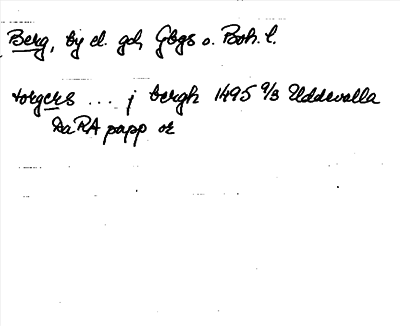 Berg, by el. gd, Gbgs o. Boh. l.
torgers ... j bergh 1495 9/3 Uddevalla
DaRA papp or